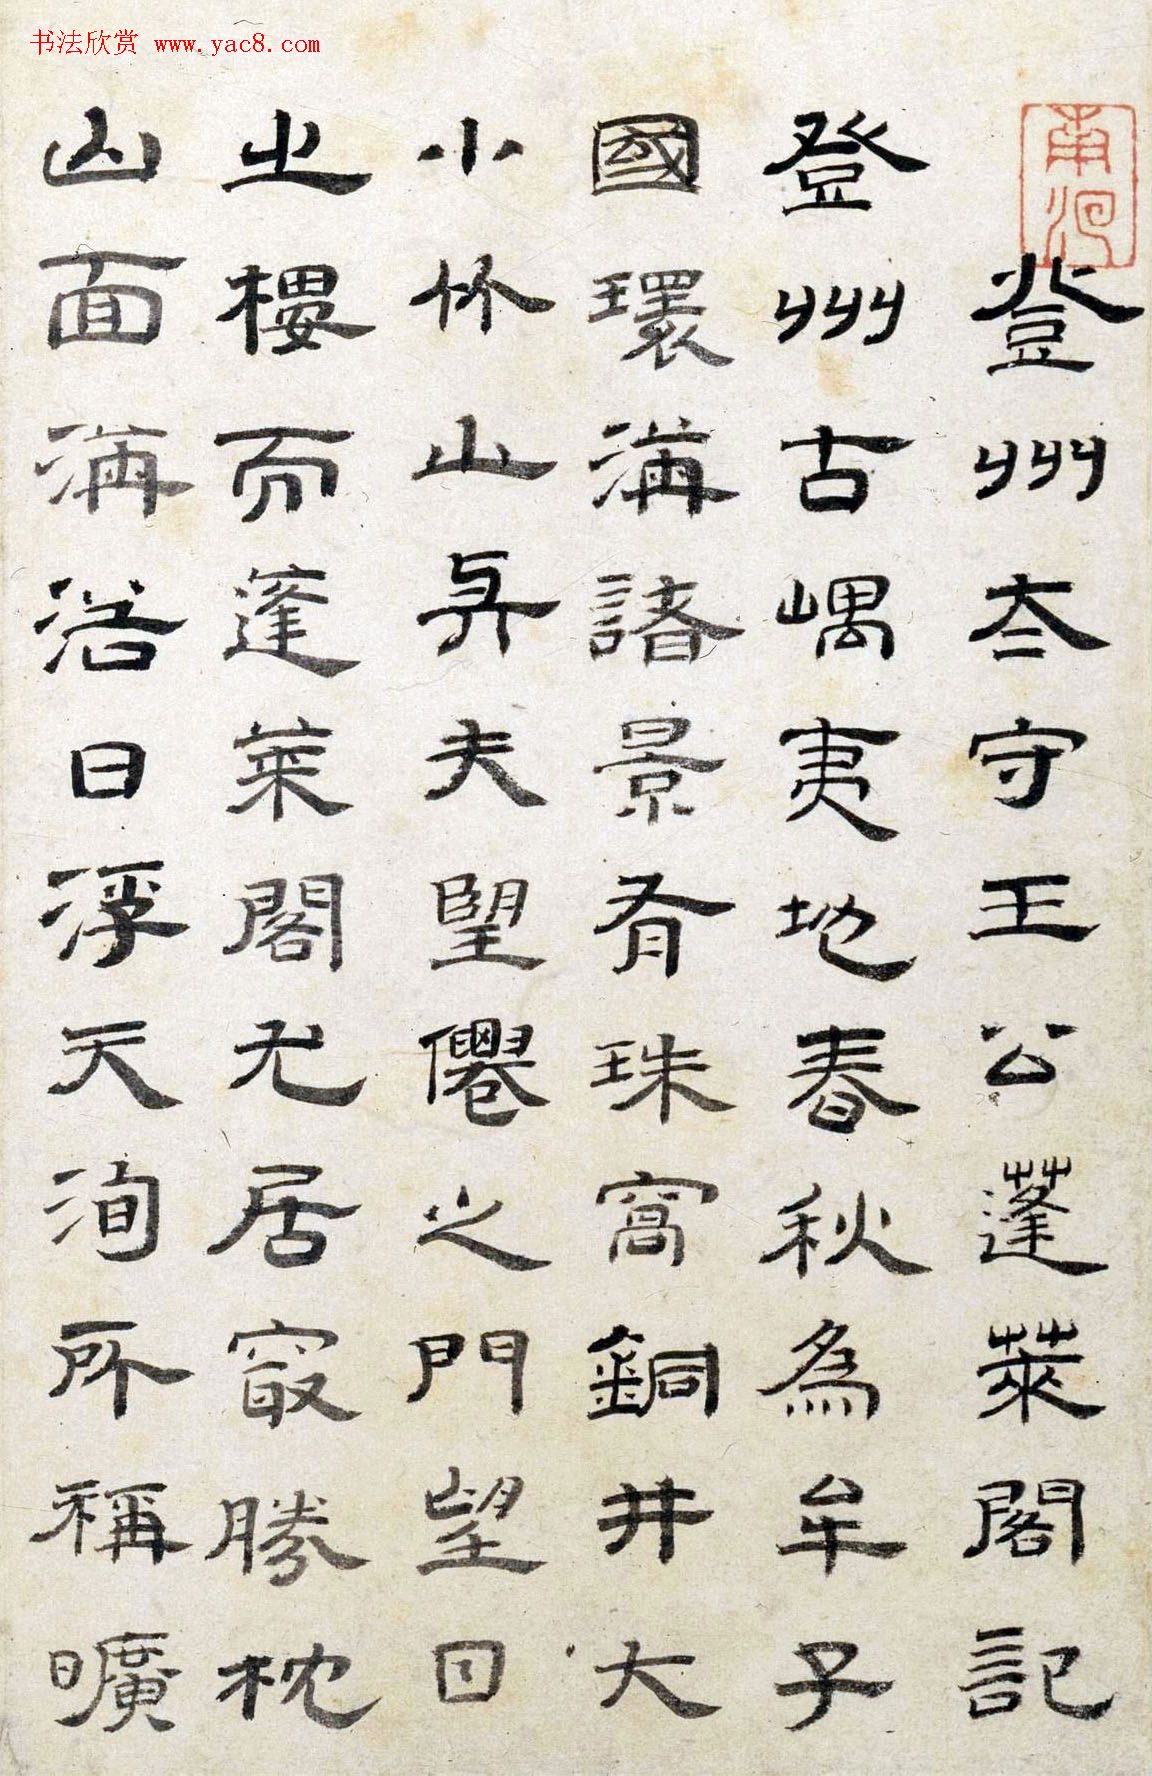 书法欣赏 www.yac8.com
登州太守王公蓬萊閣記
登州古嵎夷地春秋為牟子
國環海諸景有珠窩銅井大
小竹山與夫望僊之門望日
之樓而蓬萊閣尤居最勝枕
山面海浴日浮天洵所稱曠